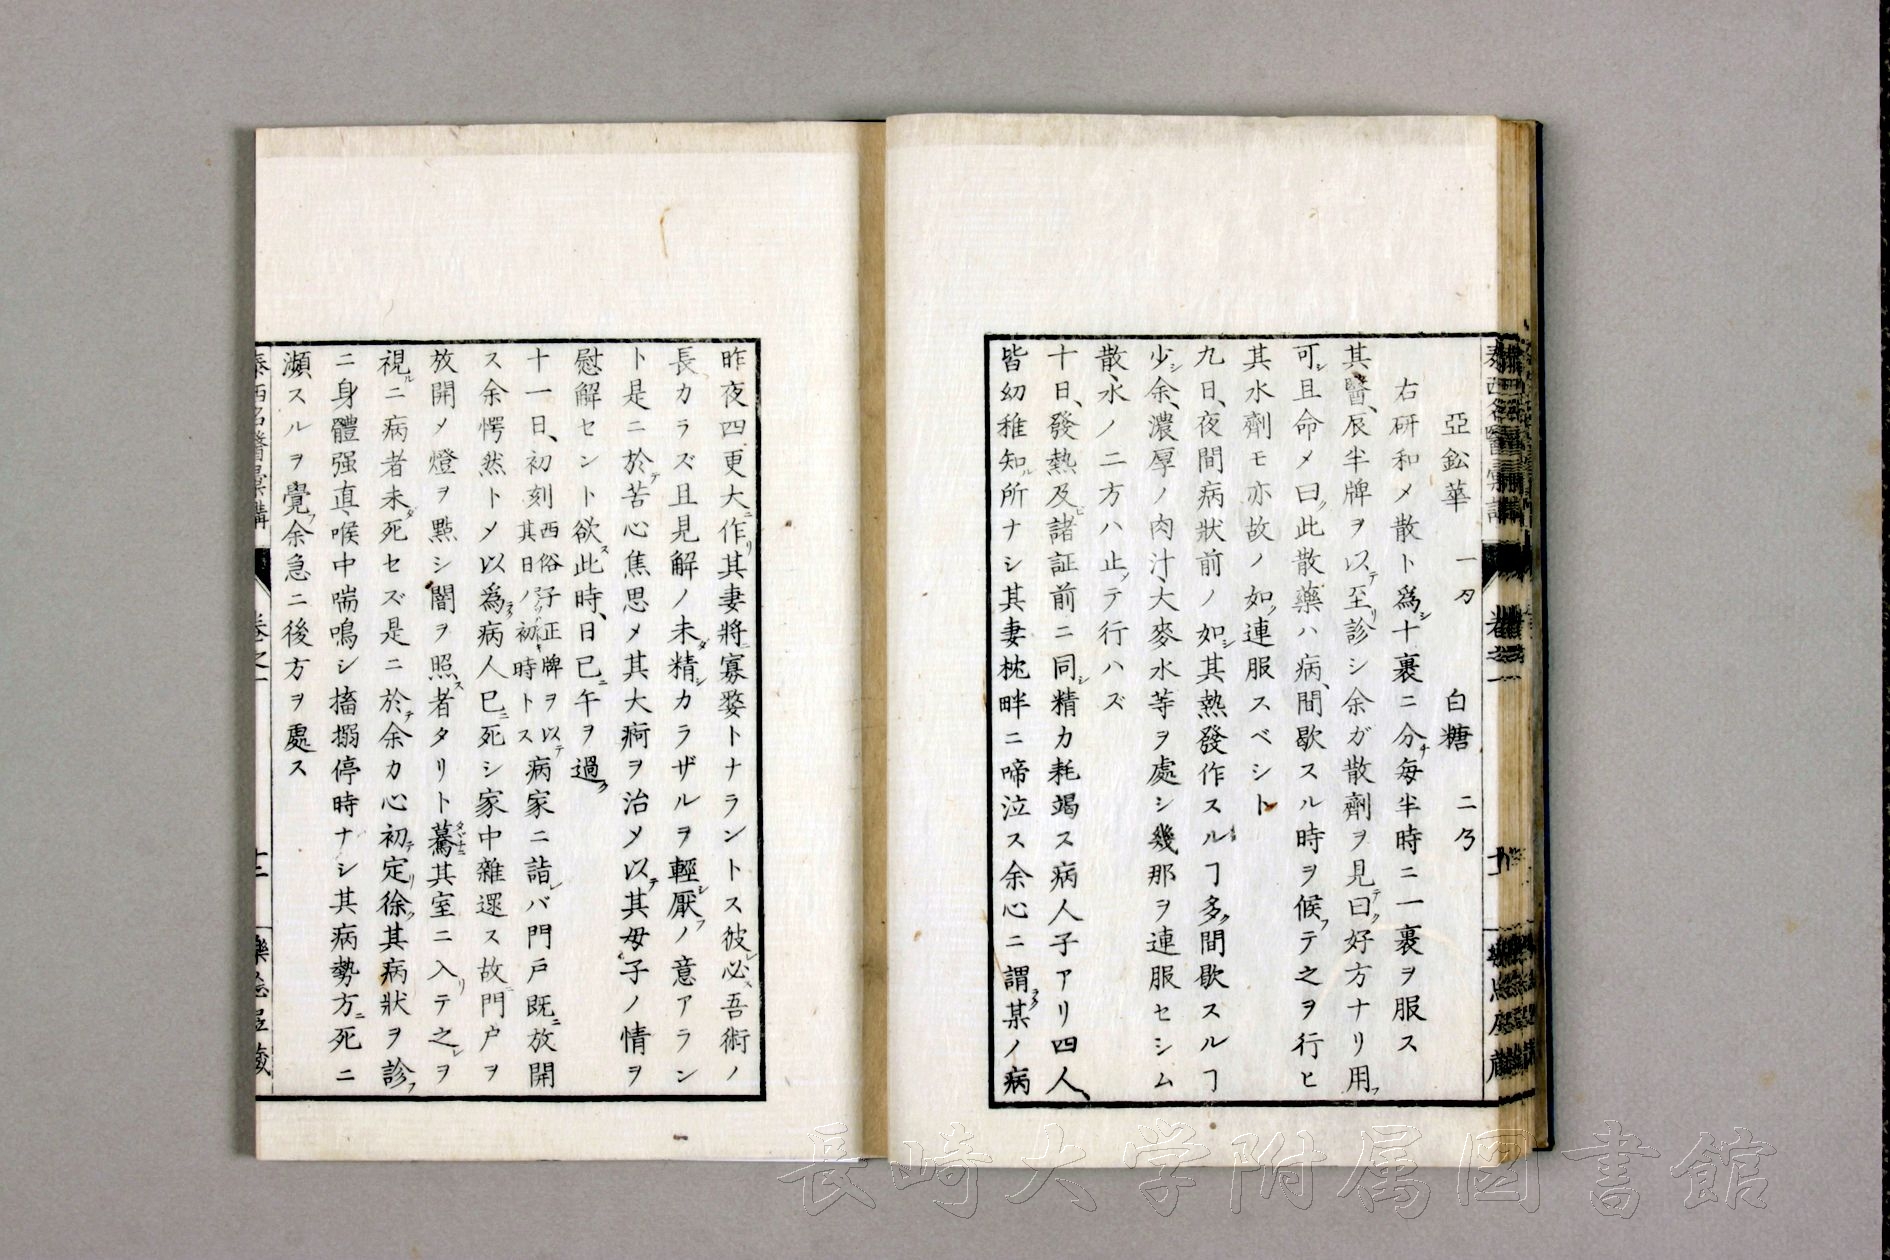 亞鈆華 一刄 白糖 二匁
右研和メ散ト為シ十裹ニ分チ毎半時ニ一裹ヲ服ス
其醫、辰半牌ヲ以テ至リ診シ余ガ散劑ヲ見テ曰ク好方ナリ用フ
可シ且命メ曰ク此散藥ハ病、間歇スル時ヲ候フテ之ヲ行ヒ
其水劑モ亦故ノ如ク連服スベシト
九日、夜間病狀前ノ如シ其熱發作スルヿ多ク間歇スルヿ
少シ余、濃厚ノ肉汁、大麥水等ヲ處シ幾那ヲ連服セシム
散、水ノ二方ハ止メテ行ハズ
十日、發熱及ヒ諸証前ニ同シ精力耗竭ス病人子アリ四人、
皆幼稚知ル所ナシ其妻枕畔ニ啼泣ス余心ニ謂ラク某ノ病
昨夜四更大ニ作リ其妻將ニ寡嫠トナラントス彼レ必ス吾術ノ
長カラズ且見解ノ未タ精シカラザルヲ輕シ厭フノ意アラン
ト是ニ於テ苦心焦思メ其大痾ヲ治メ以テ其母子ノ情ヲ
慰解セント欲ス此時、日已ニ午ヲ過ク
十一日、初刻西俗子正牌ヲ以テ其日ノ初時トス病家ニ詣レバ門戸既ニ放開
ス余愕然トメ以為ラク病人已ニ死シ家中雜遝ス故ニ門戸ヲ
放開メ燈ヲ點シ闇ヲ照ス者タリト驀其室ニ入リテ之レヲ
視ルニ病者未タ死セズ是ニ於テ余カ心初テ定リ徐フ其病狀ヲ診フ
ニ身體强直、喉中喘鳴シ搐搦停時ナシ其病勢方ニ死ニ
瀕スルヲ覺フ余急ニ後方ヲ處ス
泰西名醫彙講 卷之一 十三